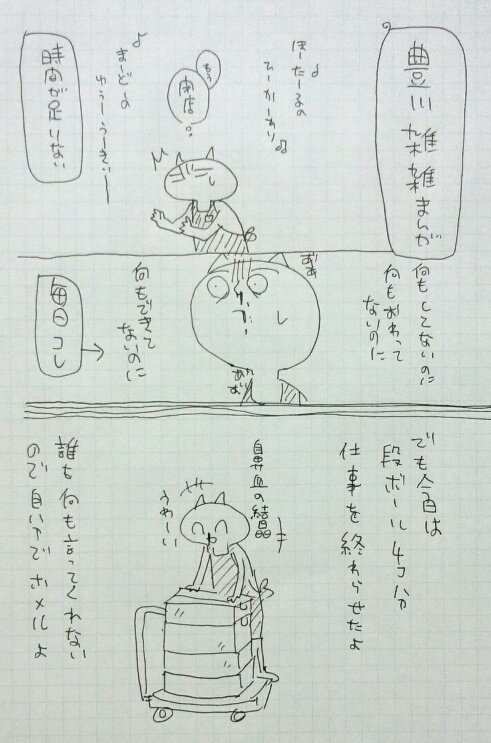 豊川雑雑まんが
ほーたーるの
ひーかーあり♪
もう
閉店。
♪
まーどーの
ゆうーうーきいー
時間が足りない
何もしてないのに
何もおわって
ないのに
何もできて
ないのに
毎日コレ
でも今日は
段ボール4コ分
仕事を終わらせたよ
鼻血の結晶
うわーい
誰も何も言ってくれない
ので自分でホメルよ